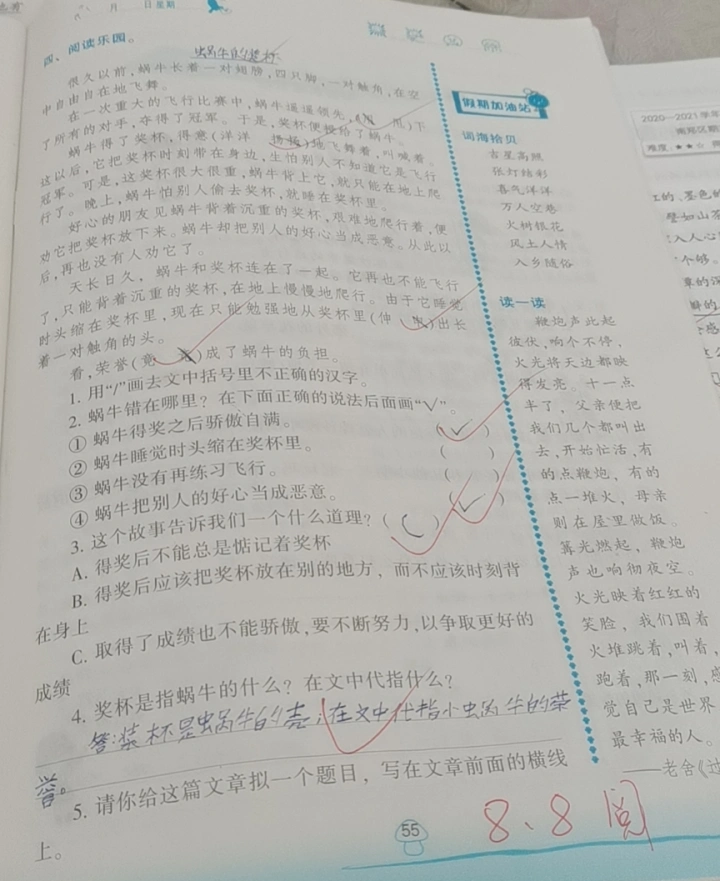 月 日 星期
四、阅读乐园。
蜗牛的奖杯
很久以前,蜗牛长着一对翅膀,四只脚,一对触角,在空
中自由自在地飞舞。
在一次重大的飞行比赛中,蜗牛遥遥领先,下
了所有的对手,夺得了冠军。于是,奖杯便授给了蜗牛。
蜗牛得了奖杯,得意(洋洋 扬扬)地飞舞着,叫喊着。
这以后,它把奖杯时刻带在身边,生怕别人不知道它是飞行
冠军。可是,这奖杯很大很重,蜗牛背上它,就只能在地上爬
行了。晚上,蜗牛怕别人偷去奖杯,就睡在奖杯里。
好心的朋友见蜗牛背着沉重的奖杯,艰难地爬行着,便
劝它把奖杯放下来。蜗牛却把别人的好心当成恶意。从此以
后,再也没有人劝它了。
天长日久,蜗牛和奖杯连在了一起。它再也不能飞行
了,只能背着沉重的奖杯,在地上慢慢地爬行。由于它睡觉
时头缩在奖杯里,现在只能勉强地从奖杯里(伸 )出长
着一对触角的头。
看,荣誉(竟 )成了蜗牛的负担。
1. 用“/”画去文中括号里不正确的汉字。
2. 蜗牛错在哪里?在下面正确的说法后面画“√”。
① 蜗牛得奖之后骄傲自满。 (√)
② 蜗牛睡觉时头缩在奖杯里。 ( )
③ 蜗牛没有再练习飞行。 ( )
④ 蜗牛把别人的好心当成恶意。 (√)
3. 这个故事告诉我们一个什么道理?(C)
A. 得奖后不能总是惦记着奖杯
B. 得奖后应该把奖杯放在别的地方,而不应该时刻背
在身上
C. 取得了成绩也不能骄傲,要不断努力,以争取更好的
成绩
4. 奖杯是指蜗牛的什么?在文中代指什么?
答:奖杯是蜗牛的壳,在文中代指小蜗牛的荣
誉。
5. 请你给这篇文章拟一个题目,写在文章前面的横线
上。
55
8、8 阅
假期加油站
词海拾贝
吉星高照
张灯结彩
喜气洋洋
万人空巷
火树银花
风土人情
入乡随俗
读一读
鞭炮声此起
彼伏,响个不停,
火光将天边都映
得发亮。十一点
半了,父亲便把
我们几个都叫出
去,开始忙活,有
的点鞭炮,有的
点一堆火,母亲
则在屋里做饭。
篝火燃起,鞭炮
声也响彻夜空。
火光映着红红的
笑脸,我们围着
火堆跳着,叫着,
跑着,那一刻,感
觉自己是世界
最幸福的人。
——老舍《过
2020—2021学年
难度:★★☆